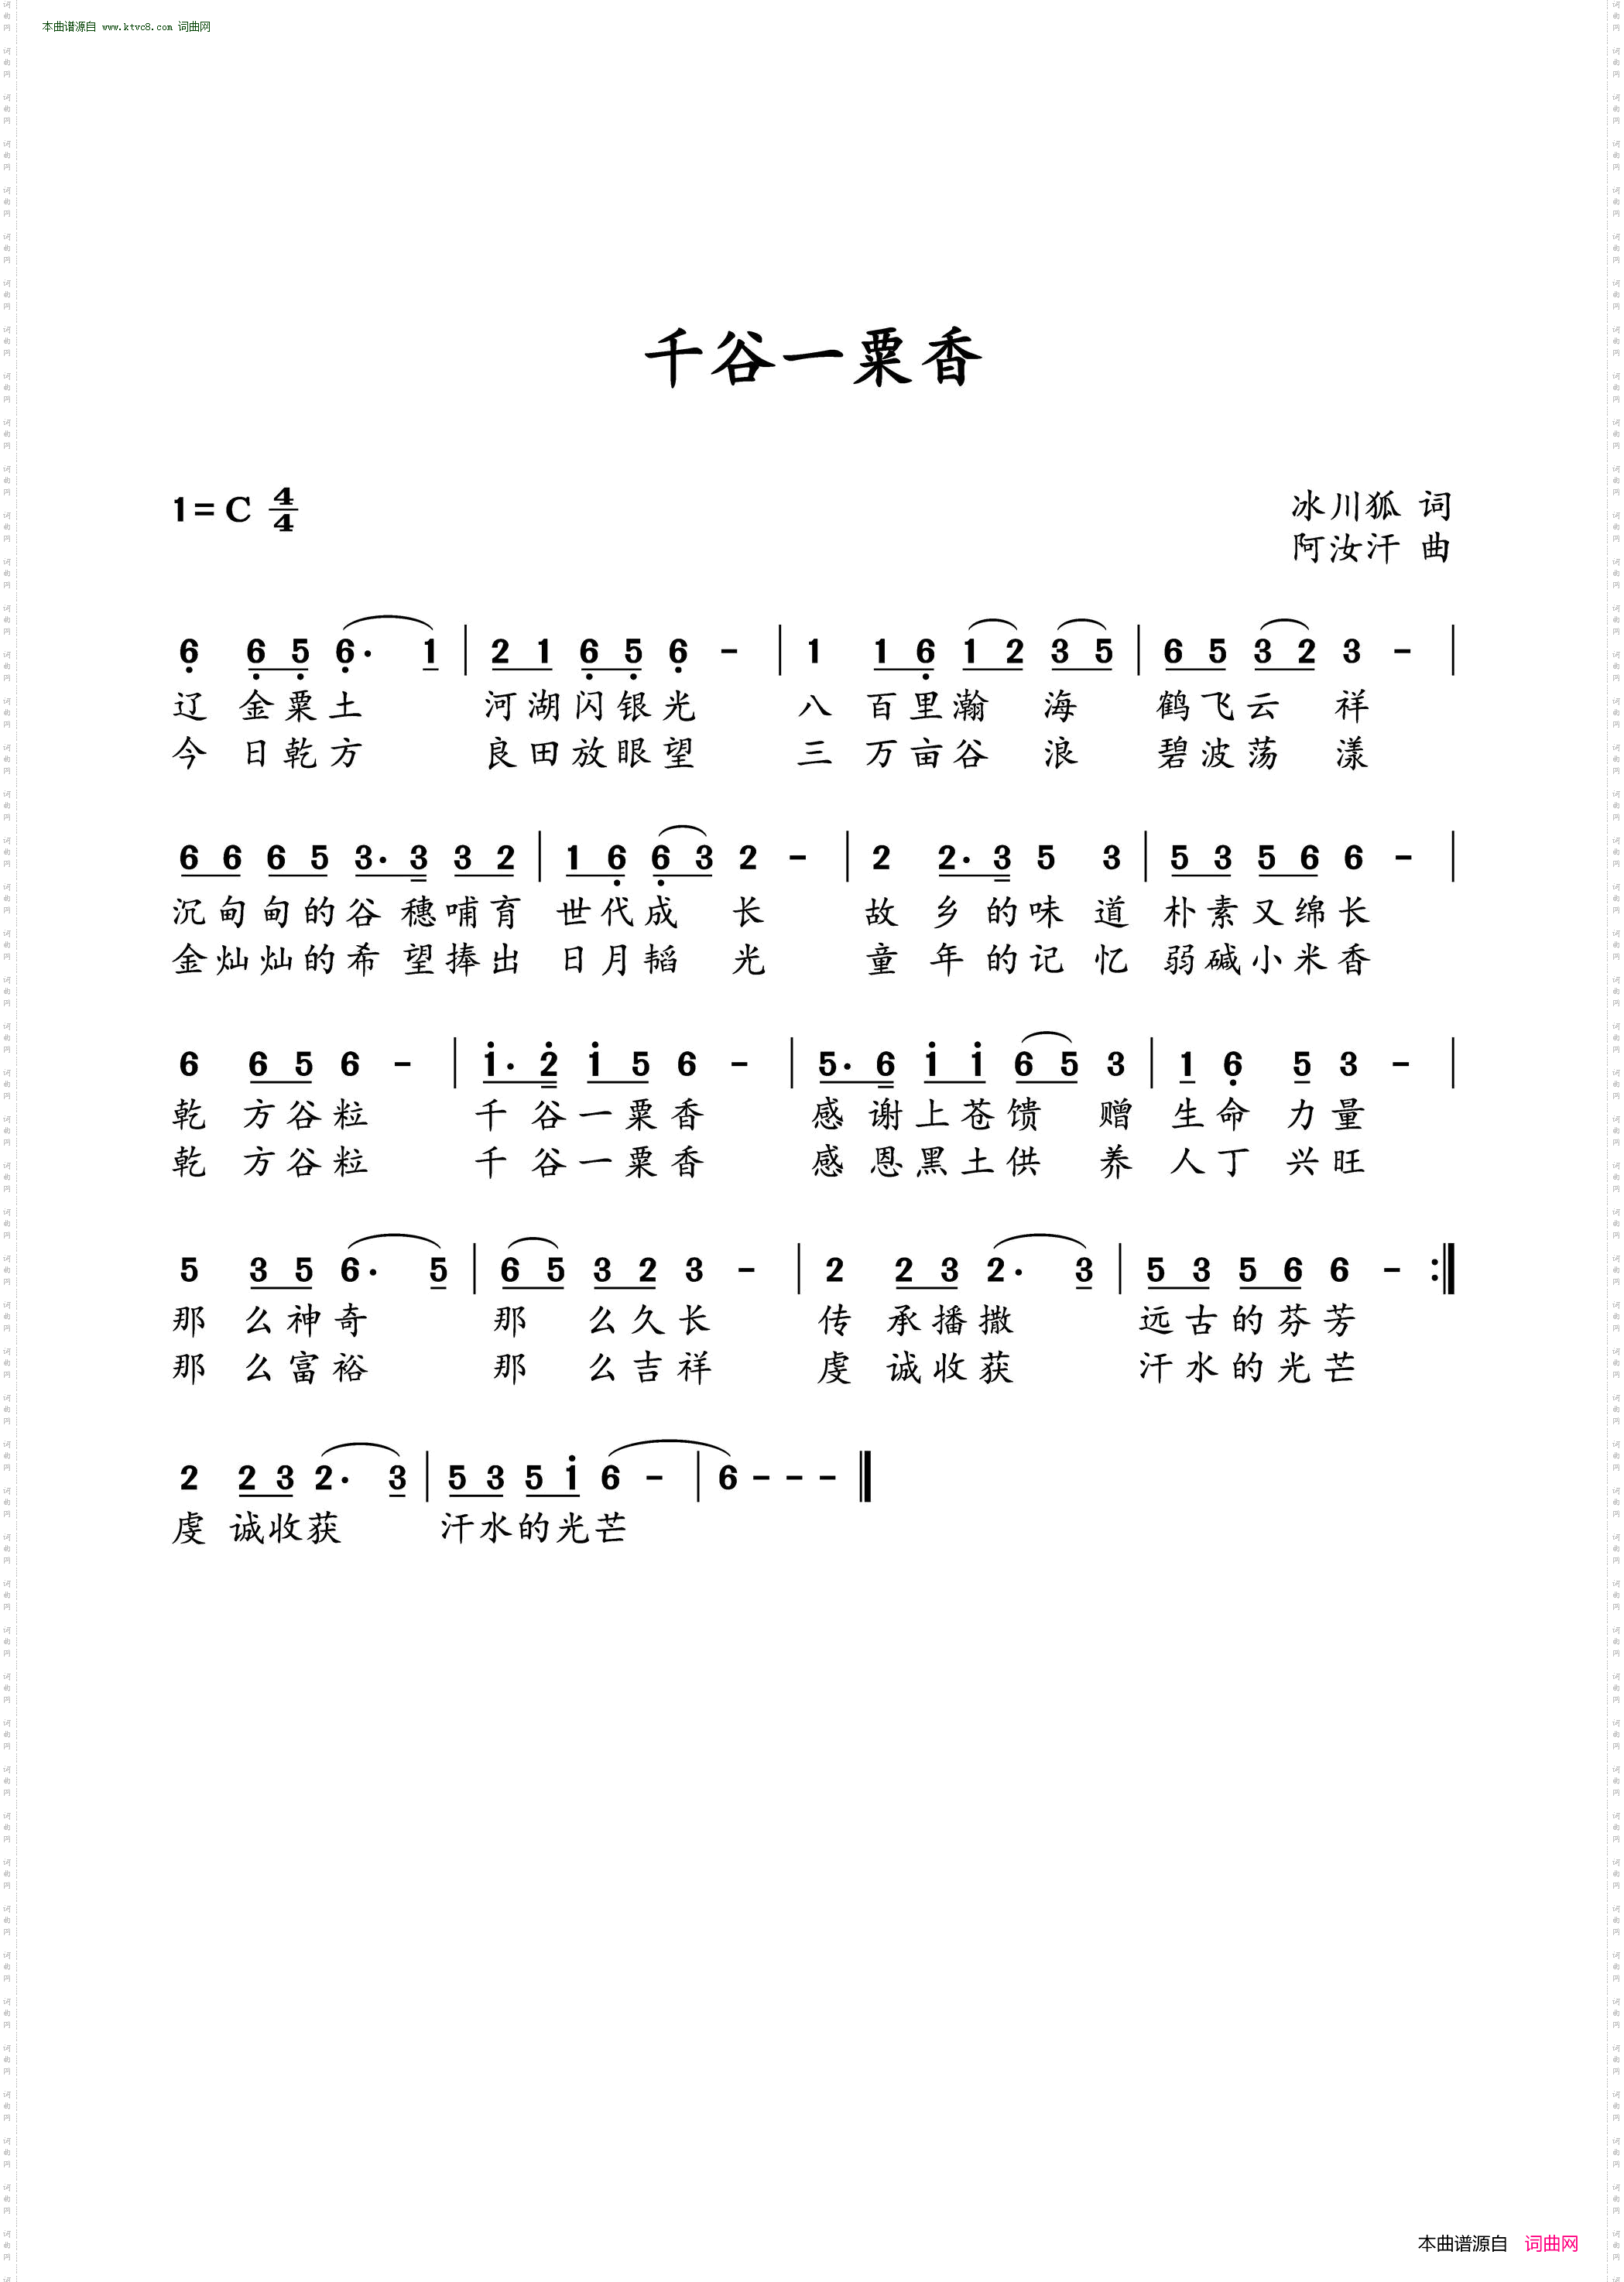 本曲谱源自 www.ktvc8.com 词曲网
千谷一粟香
1=C 4/4
冰川狐 词
阿汝汗 曲
6̣ 6̣ 5̣ 6̣· 1 | 2 1 6̣ 5̣ 6̣ - | 1 1 6̣ 1 2 3 5 | 6 5 3 2 3 - |
辽 金粟土 河湖闪银光 八 百里瀚 海 鹤飞云 祥
今 日乾方 良田放眼望 三 万亩谷 浪 碧波荡 漾
6 6 6 5 3· 3 3 2 | 1 6̣ 6̣ 3 2 - | 2 2· 3 5 3 | 5 3 5 6 6 - |
沉甸甸的谷 穗哺育 世代成 长 故 乡 的味 道 朴素又绵长
金灿灿的希 望捧出 日月韬 光 童 年 的记 忆 弱碱小米香
6 6 5 6 - | 1̇· 2̇ 1̇ 5 6 - | 5· 6 1̇ 1̇ 6 5 3 | 1 6̣ 5 3 - |
乾 方谷粒 千 谷一粟香 感 谢上苍馈 赠 生命 力量
乾 方谷粒 千 谷一粟香 感 恩黑土供 养 人丁 兴旺
5 3 5 6· 5 | 6 5 3 2 3 - | 2 2 3 2· 3 | 5 3 5 6 6 - :‖
那 么神奇 那 么久长 传 承播撒 远古的芬芳
那 么富裕 那 么吉祥 虔 诚收获 汗水的光芒
2 2 3 2· 3 | 5 3 5 1̇ 6 - | 6 - - - ‖
虔 诚收获 汗水的光芒
本曲谱源自 词曲网